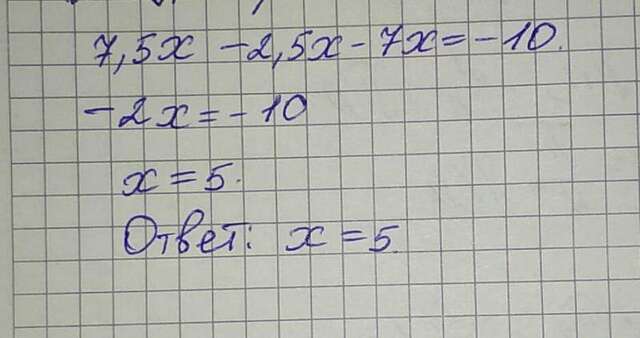 7,5x - 2,5x - 7x = -10.
-2x = -10
x = 5.
Ответ: x = 5.